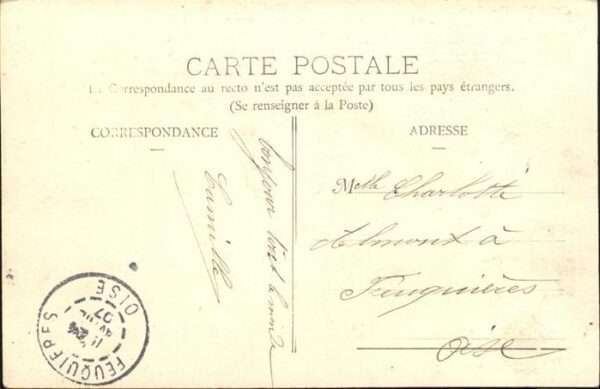 CARTE POSTALE
La Correspondance au recto n'est pas acceptée par tous les pays étrangers.
(Se renseigner à la Poste)
CORRESPONDANCE
ADRESSE
bonjour tout le monde
Camille
Melle Charlotte
Almont à
Feuquières
Oise
FEUQUIÈRES
OISE
07